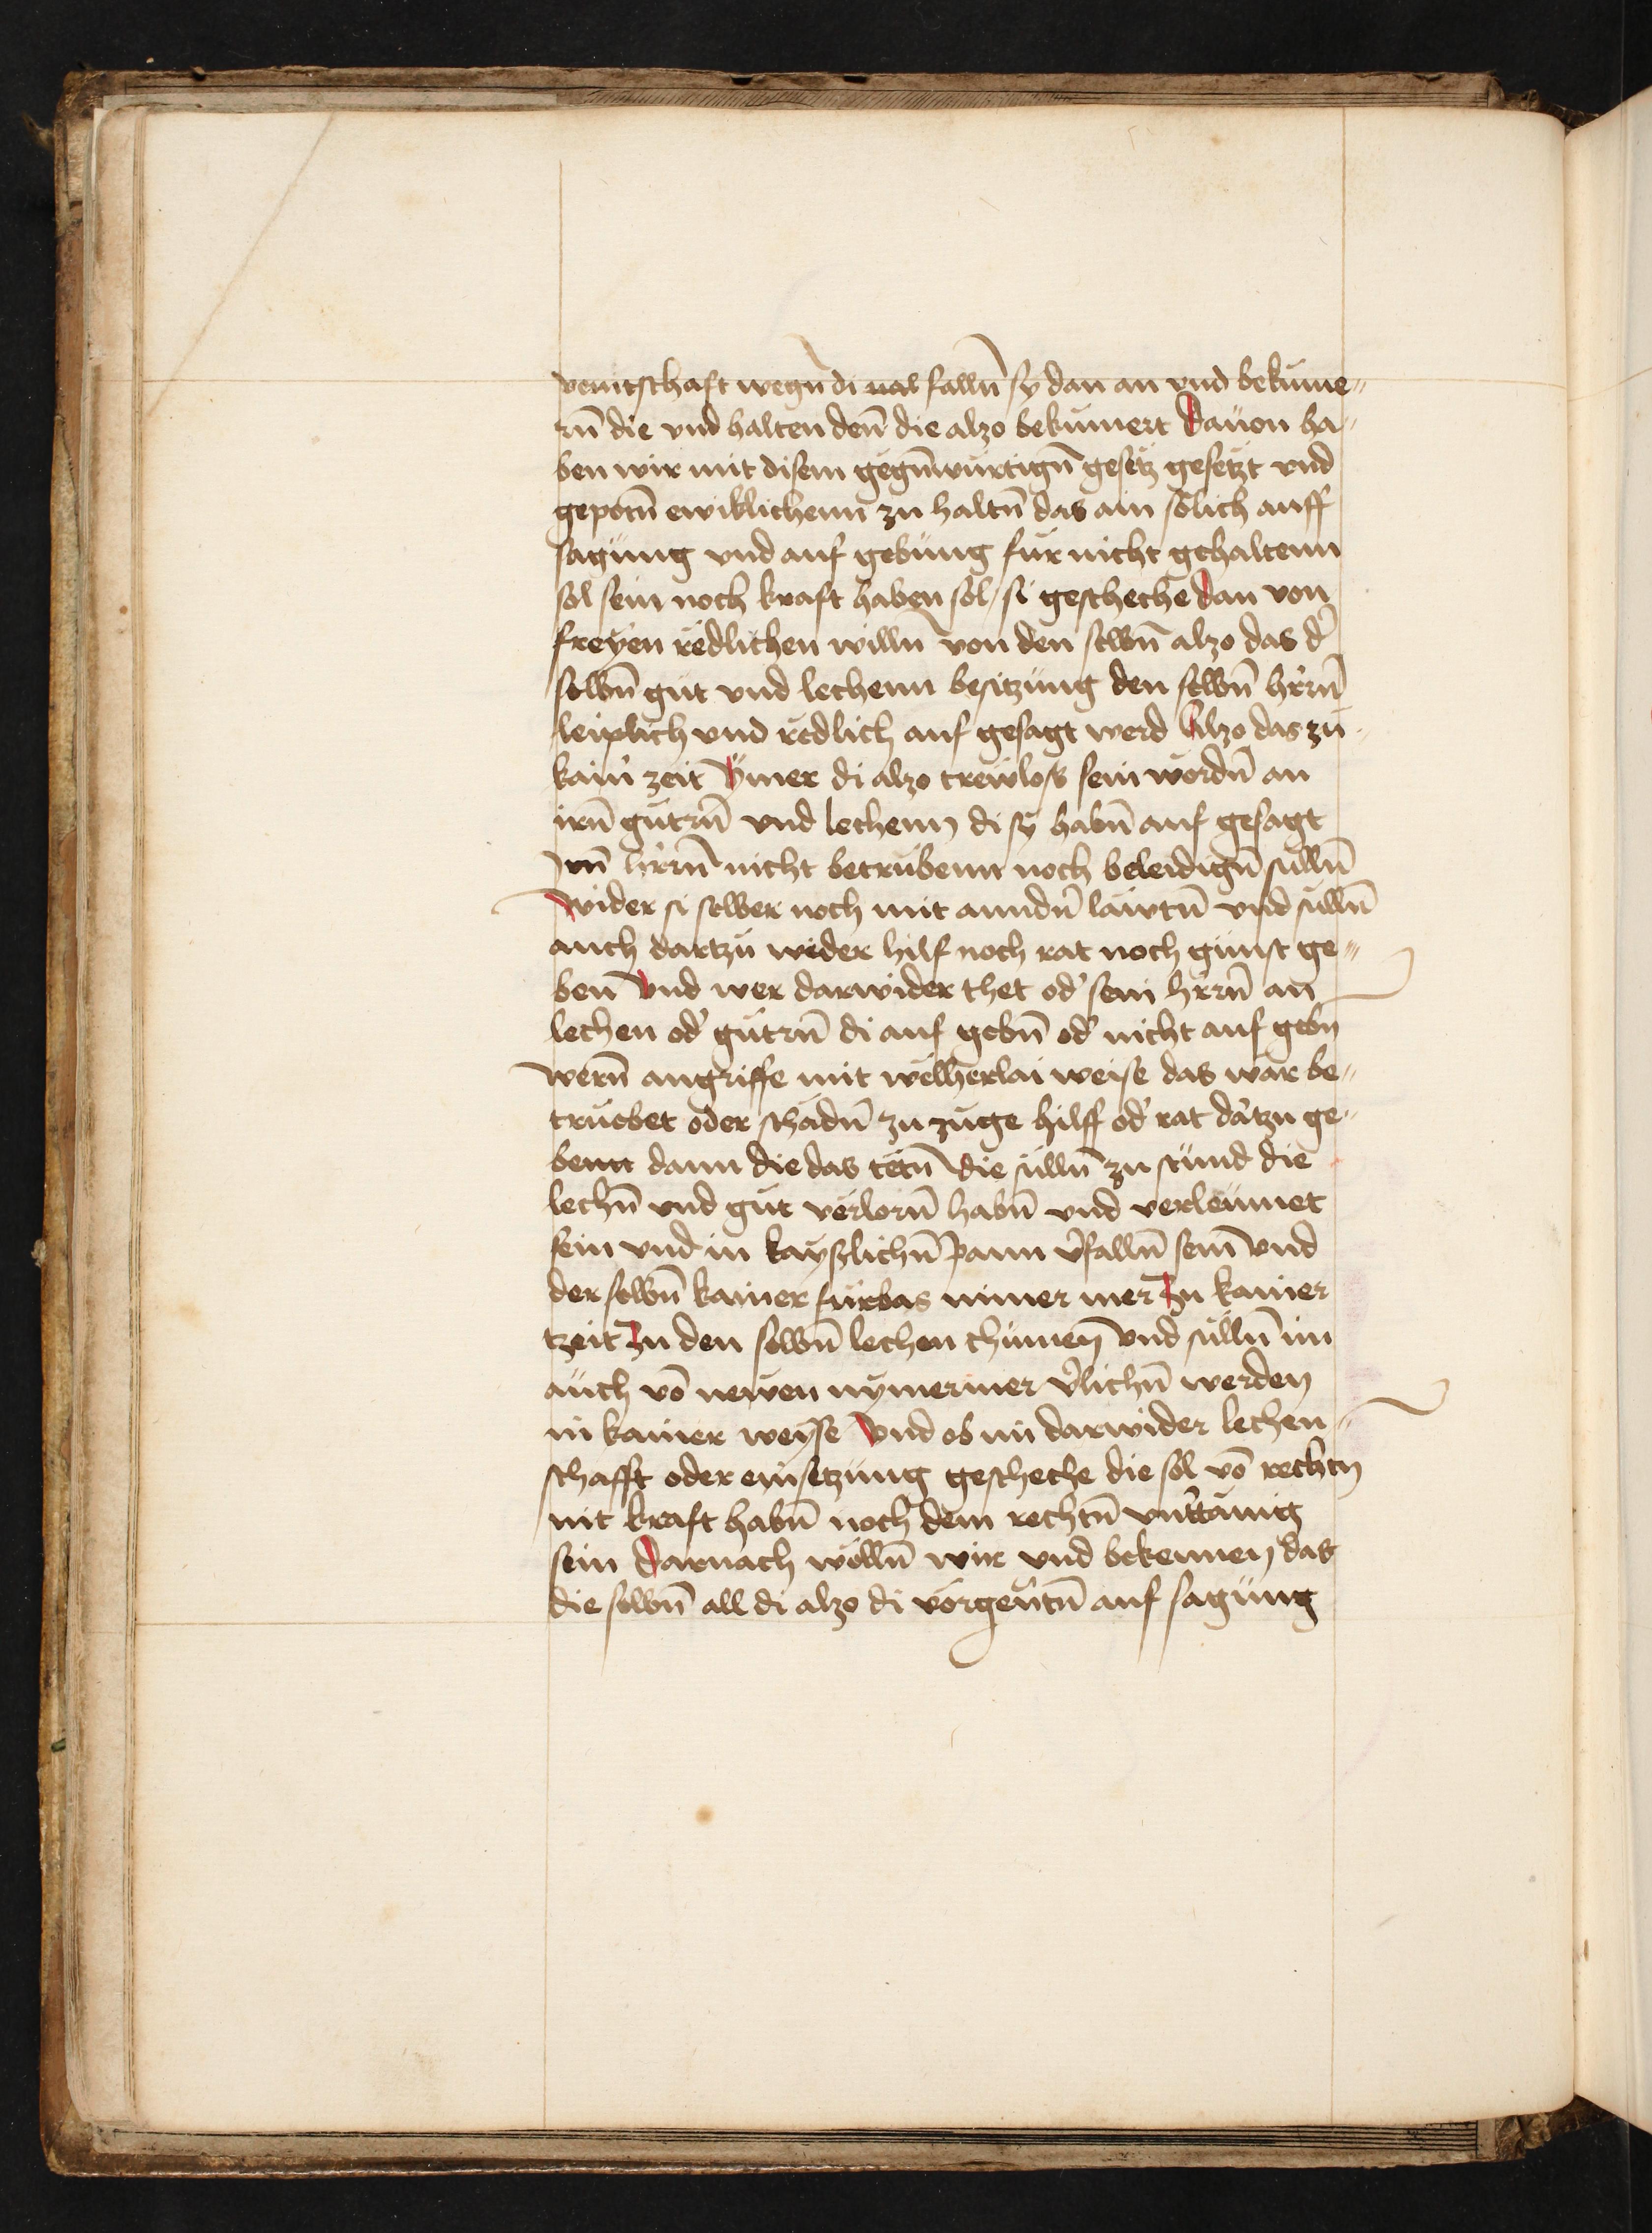 veintschaft wegn̄ di ual falln̄ sy dan an vnd bekūme⸗
rn̄ die vnd halten den̄ die alzo bekumert Dauon ha⸗
ben wir mit disem gegn̄würtign̄ gesetz gesetzt vnd
gepotn̄ ewiklichenn zu haltn̄ das ain sölich auff
sagüng vnd auf gebüng für nicht gehaltenn
sol sein noch kraft haben sol si gescheche dan von
freyen redlichen willn̄ von den selbn̄ alzo das d᷑
selbn̄ güt vnd lechenn besitzüng den selbn̄ hr̄rn̄
leiplich vnd redlich auf gesagt werd Alzo das zü⸗
kain᷑ zeit ymer di alzo trewloß sein wordn̄ an
irn̄ gütrn̄ vnd lechenn di sy habn̄ auf gesagt
irn̄ hr̄rn̄ nicht betrübenn noch beleidign̄ sülln̄
wider si selber noch mit anndn̄ läwtn̄ vnd sülln̄
auch dartzü weder hilf noch rat noch günst ge⸗
ben̄ Vnd wer darwider thet od᷑ sein hr̄rn̄ an
lechen od᷑ gütrn̄ di auf gebn̄ od᷑ nicht auf gebn
wern̄ angriffe mit welherlai weise das wär be⸗
truebet oder schadn̄ zu züge hilff od᷑ rat dätzu ge⸗
benn dann die das tetn̄ die sülln̄ zu stund die
lechn̄ vnd güt verlorn̄ habn̄ vnd verleumet
sein vnd in kayßlichn̄ pann v᷑falln̄ sein̄ vnd
der selbn̄ kainer fürbas nimer mer zu kainer
tzeit zu den selbn̄ lechen chümen̄ vnd sülln̄ im
auch vō newen nymermer v᷑lichn̄ werden
in kainer weyse Vnd ob im darwider lechen⸗
schafft oder einsetzüng gescheche die sol vō rechtn
nit kraft habn̄ noch dem rechtn̄ vnttänig
sein Darnach wölln̄ wir vnd bekennen das
die selbn̄ all di alzo di vorgen̄tn̄ auf sagüng